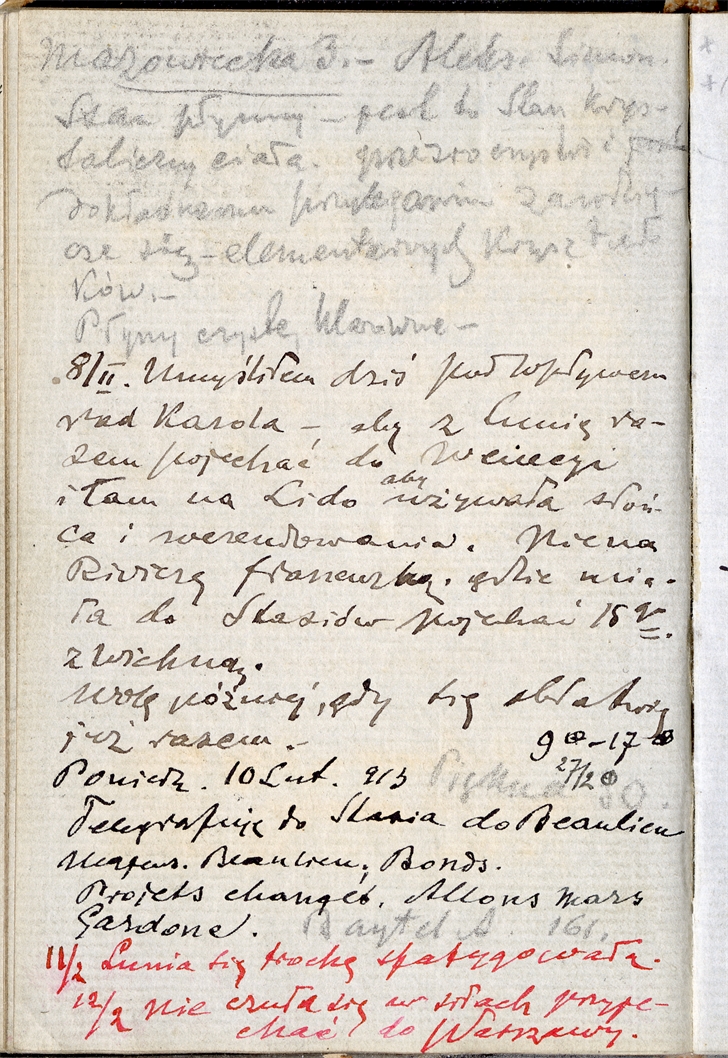 Mazowiecka 3. – Aleks. Simon.
Stan płynny – jest to Stan Krys-
taliczny ciała. przezroczystość i
dokładnem przyleganiem
się – elementarnych Kryształ
ków. –
Płyny czyste, klarowne –
8/II. Umyśliłem dziś pod wpływem
rad Karola – aby z Lunią ra-
zem pojechać do Wenecyi
i tam na Lido aby używała słoń-
ca i werendowania. Nie na
Rivierę francuską. gdzie mia-
ła do Stasiów pojechać 15
z Wichną.
Wolę później, gdy się ułatwię
już razem. –
9 – 17
27/2
Poniedz. 10 Lut. 913 Piękna 50.
Telegrafuję do Stasia do Beaulieu
Beaulieu, Bonds.
Projets changés. Allons mars
Gardone. Baytel A. 161.
11/2 Lunia się trochę sfatygowała.
12/2 Nie czuła się w siłach przyje-
chać do Warszawy.